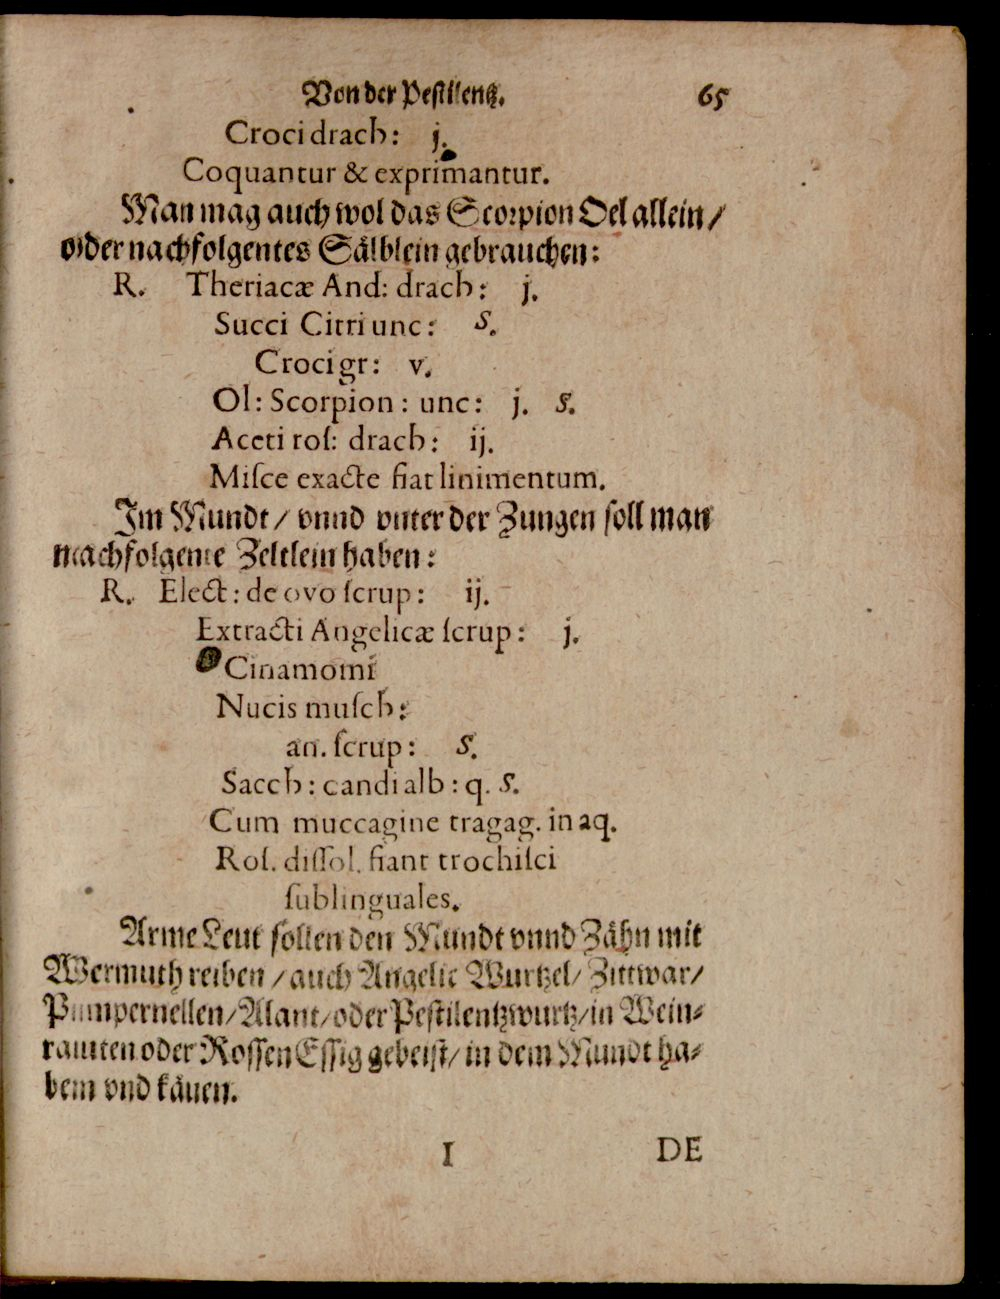 Von der Pestilentz. 65
Croci drach: j.
Coquantur & exprimantur.
Man mag auch wol das Scorpion Oel allein/
oder nachfolgentes Sälblein gebrauchen:
R. Theriacæ And: drach: j.
Succi Citri unc: s.
Croci gr: v.
Ol: Scorpion: unc: j. s.
Aceti roſ: drach: ij.
Miſce exacte fiat linimentum.
Im Mundt/ vnnd vnter der Zungen ſoll man
nachfolgente Zeltlein haben:
R. Elect: de ovo ſcrup: ij.
Extracti Angelicæ ſcrup: j.
Cinamomi
Nucis muſch:
an. ſcrup: s.
Sacch: candi alb: q. s.
Cum muccagine tragag. in aq.
Roſ. diſſol. fiant trochiſci
ſublinguales.
Arme Leut ſollen den Mundt vnnd Zähn mit
Wermuth reiben/ auch Angelic Wurtzel/ Zittwar/
Pimpernellen/ Alant/ oder Peſtilentzwurtz/ in Wein-
rautten oder Roſſen Eſſig gebeiſt/ in dem Mundt ha-
ben vnd käuen.
I DE